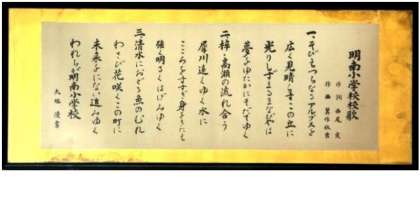 明南小学校校歌
作詞 西尾 実
作曲 箕作秋吉
一、そびえつらなるアルプスを
広く見晴らすこの丘に
光り まなびやは
夢をゆたかにそだてゆく
二、梓・高瀬の流れ合う
犀川遠くゆく水に
こころをすすぎ身を
強く はげみゆく
三、清水におどる魚のむれ
わさび花咲くこの町に
未来をにない進みゆく
われらが明南小学校
書